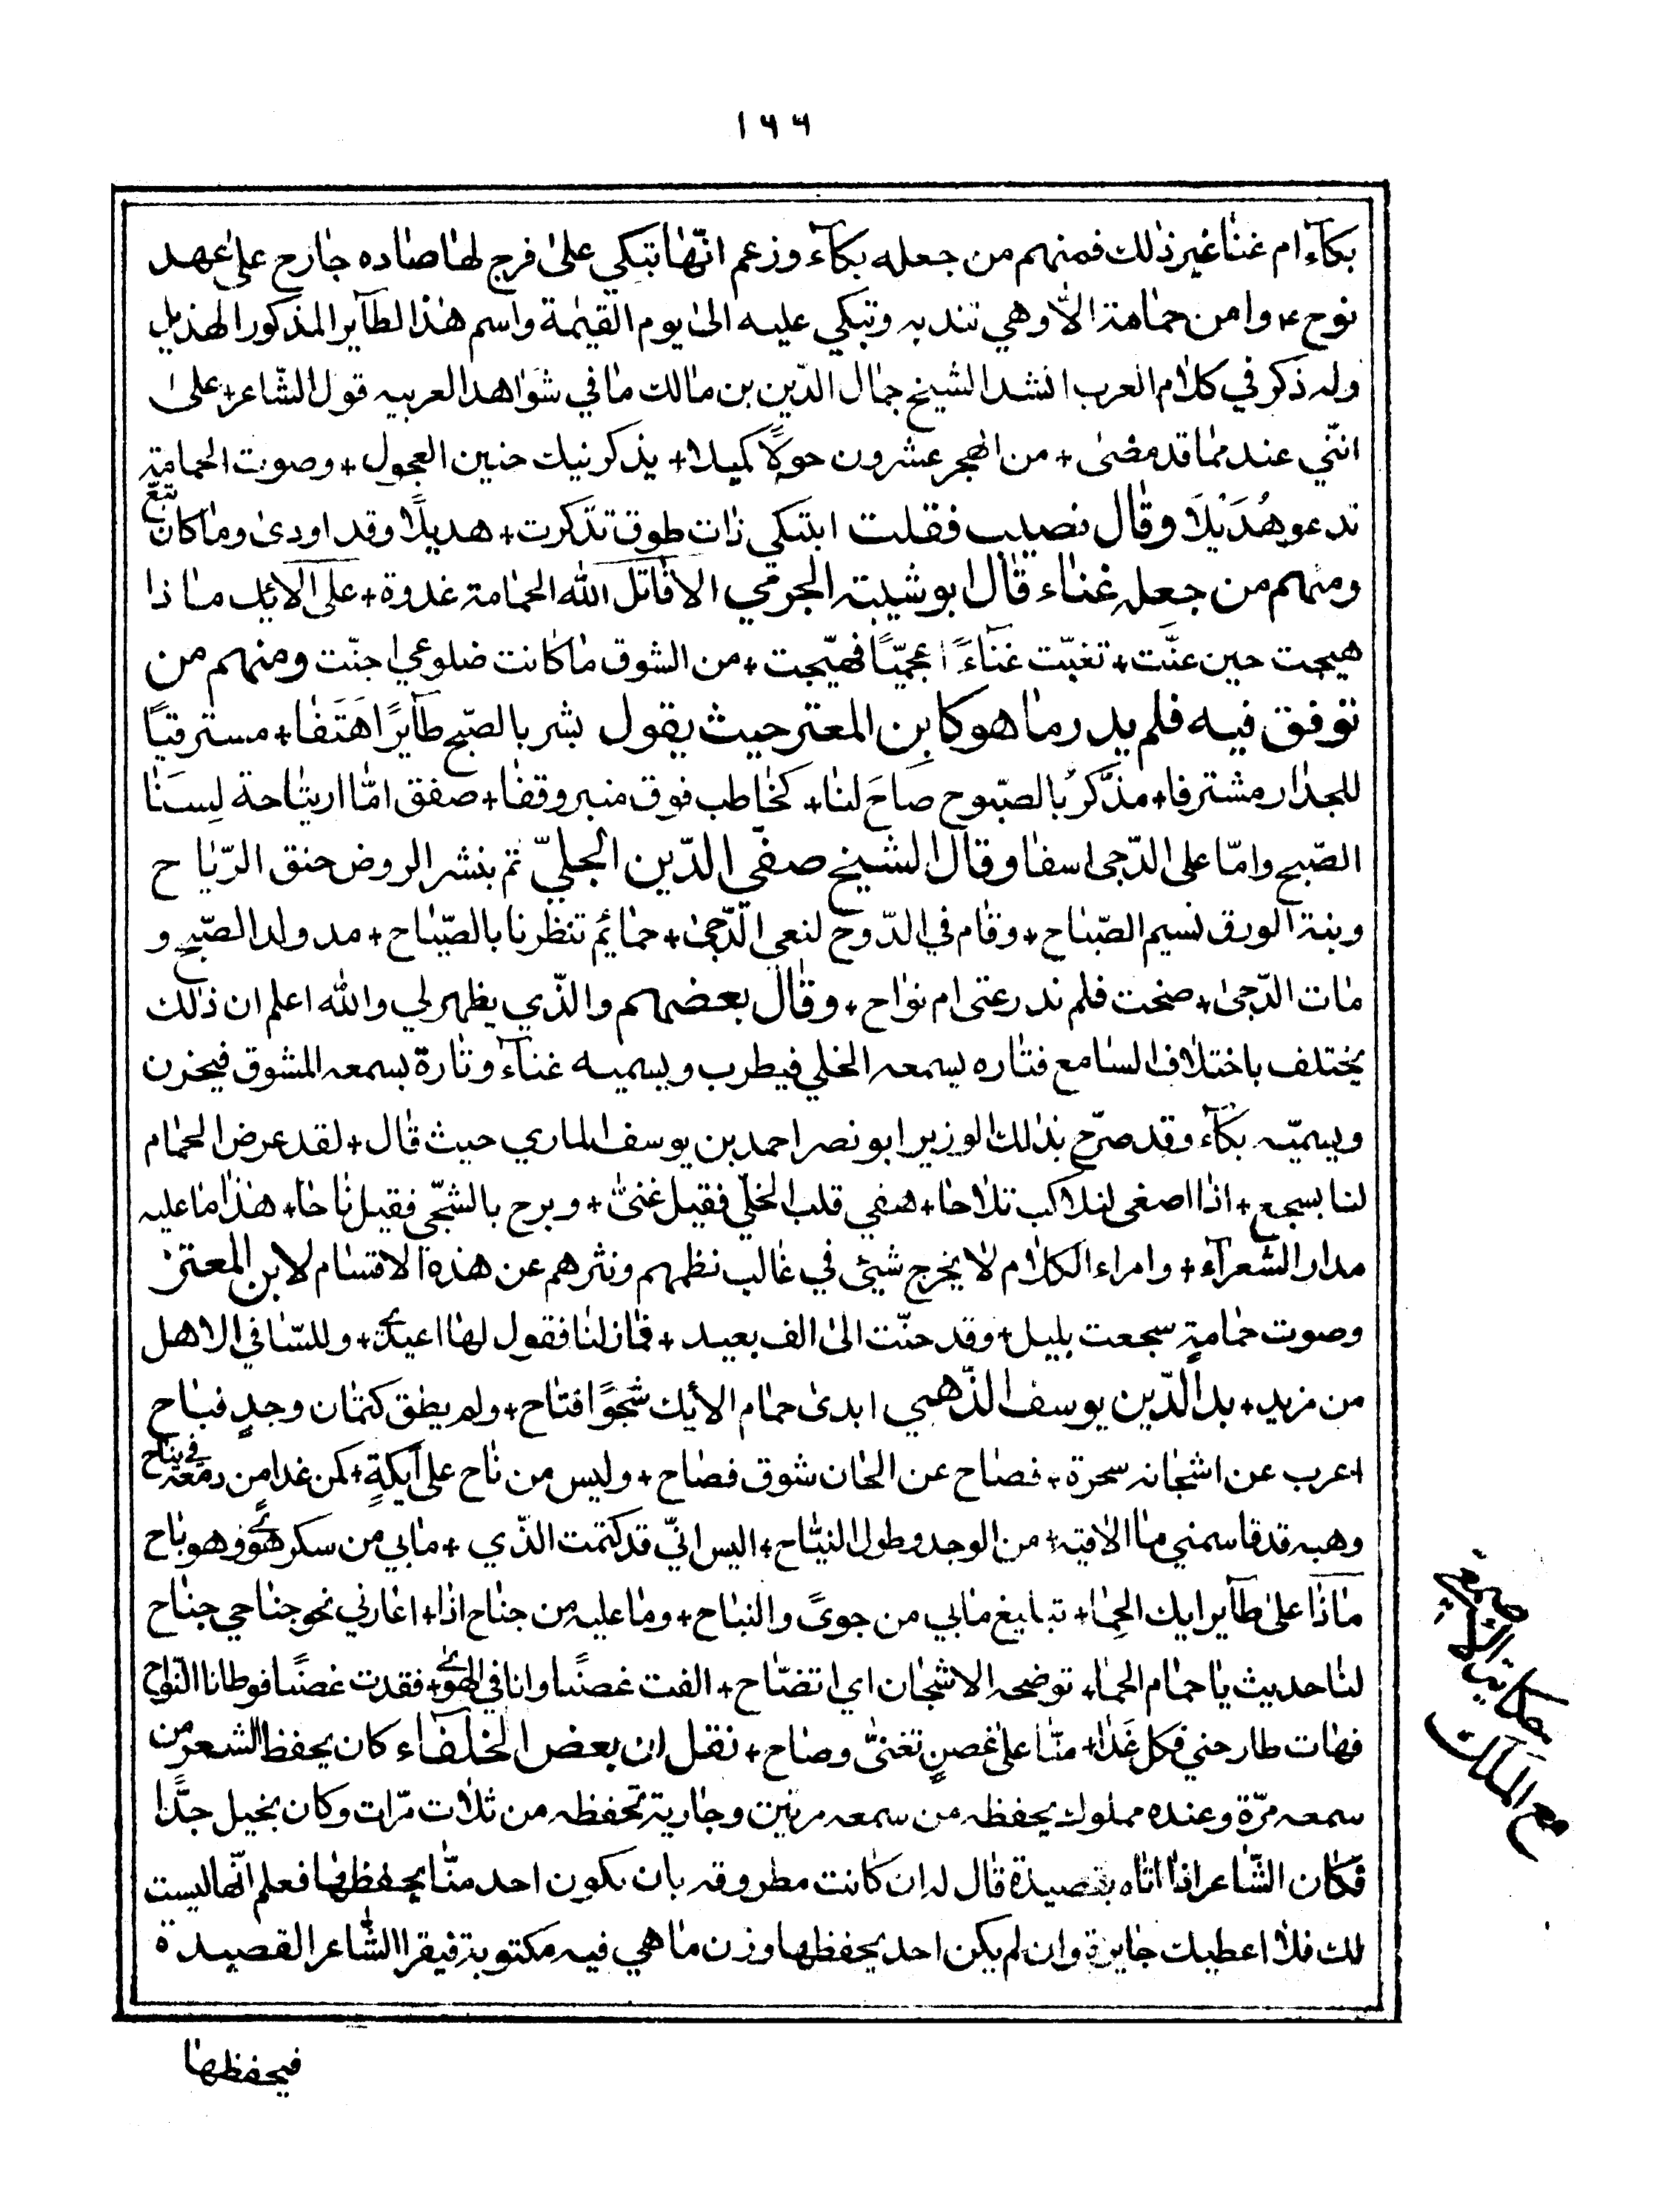 ١٦٦
بكآء ام غنا غير ذلك فمنهم من جعله بكآء وزعم انّها تبكي على فرج لها صاده جارح على عهد
نوح ع وامن حمامة الّا وهي تندبه وتبكي عليه الى يوم القيمة واسم هذا الطآير المذكور الهذيل
وله ذكر في كلام العرب انشد الشيخ جمال الدّين بن مالك ما في شواهد العربيه قول الشّاعر+ على
انّني عند مما قد مضى + من الهجر عشرون حولًا كميلا+ يذكرنيك حنين العجول + وصوت الحمامة
تدعو هُدَيْلَا وقال نصيب فقلت ابتكي ذات طوق تذكرت+ هديلًا وقد اودى وما كان تبّع
ومنهم من جعله غناء قال ابو شيبة الجرمي الا قاتل الله الحمامة غدوة+ على الايك ما ذا
هيجت حين عنّت+ تغيّت غنآءً اعجميّا فهيّجت + من الشوق ما كانت ضلوعي اجنّت ومنهم من
توفق فيه فلم يدر ما هو كابن المعتز حيث يقول بشر بالصّبح طآيرًا هَتَفَا+ مسترقيًا
للجدار مشترفا+ مذَّكرُ بالصّبوح صاحَ لنا+ كخاطب فوق منبر وقفا+ صفق امّا اريتاحة لِسَنَا
الصّبح وامّا على الدّجى اسفا وقال الشيخ صفي الدّين الحليّ تم بنشر الروض حنق الرّياح
وبنة الورق نسيم الصّباح+ وقام في الدّوح لنعي الدّجى+ حمائم تنظرنا بالصّباح+ مد ولد الصّبح و
مات الدّجى+ صحت فلم ندر عتى ام نواح + وقال بعضهم والذّي يظهر لي والله اعلم ان ذلك
يختلف باختلاف السامع فتاره يسمعه الخلي فيطرب ويسميه غنآء وتارة يسمعه المشوق فيحزن
ويسميّه بكآء وقد صرّح بذلك الوزير ابو نصر احمد بن يوسف الماري حيث قال+ لقد عرض الحمام
لنا بسجع+ اذا اصغى له الركب تلاحا+ هفي قلب الخليّ فقيل غنىّ+ وبرح بالشجّي فقيل ناحا+ هذا ما عليه
مدار الشّعرآء+ وامراء الكلام لا يخرج شيئ في غالب نظمهم ونثرهم عن هذة الاقسام لابن المعتز
وصوت حمامةٍ سجعت بليل+ وقد حنّت الى الف بعيد + فما زلنا فقول لها اعيدي+ وللسّافي الاهل
من مزيد+ بد الدّين يوسف الذّهبي ابدى حمام الأيك شجوًا فتاح+ ولم يطق كتمان وجدٍ فباح
اعرب عن اشجانه سحرة+ فصاح عن الحان شوق فصاح+ وليس من ناح على أيكةٍ+ كمن غدا من دمعه في بناح
وهبه قد قاسمني ما الاقيه+ من الوجد وطول النيّاح+ اليس انيّ قد كتمت الذّي + ما بي من سكر هوًى وهو باح
ماذا على طآير ايك الحِما+ تبليغ ما بي من جوىً والنباح+ وما عليه من جناح اذا+ اعارني نحو جناحي جناح
لنا حديث يا حمام الحما+ توضحه الاشجان اي اتضّاح+ الفت غصنًا وانا في الهوى+ فقدت غصنًا فوطانا النّواح
فهات طارحني فكل غَدا+ منّا على غصنٍ تغنىّ وصاح+ نقل ان بعض الخلفاء كان يحفظ الشعر من
سمعه مرّة وعنده مملوك يحفظه من سمعه مرتين وجارية تحفظه من ثلاث مرّات وكان بخيل جدًّا
فكان الشّاعر اذا اتاه بقصيدة قال له ان كانت مطروقه بان يكون احد منّا يحفظها فعلم انّها ليست
لك فلا اعطيك جايزة وان لم يكن احد يحفظها وزن ما هي فيه مكتوبة فيقرا الشّاعر القصيدة
فيحفظها
حكاية الاصمعي
مع الملك